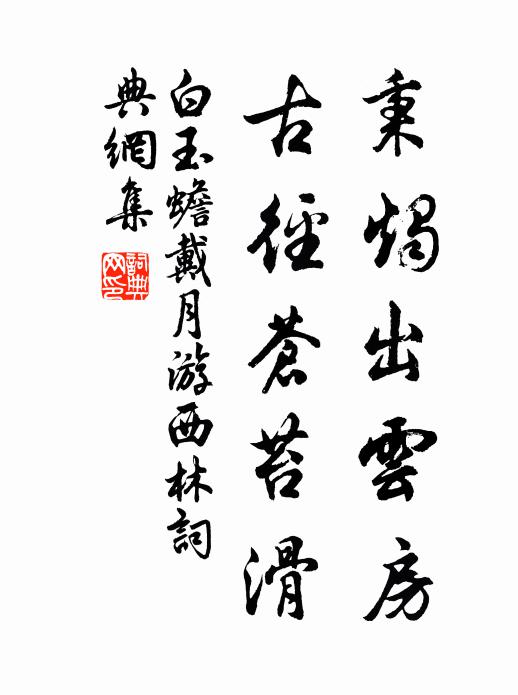 秉燭出雲房
古徑蒼苔滑
白玉蟾戴月游西林詞
典網集
詞典
网印